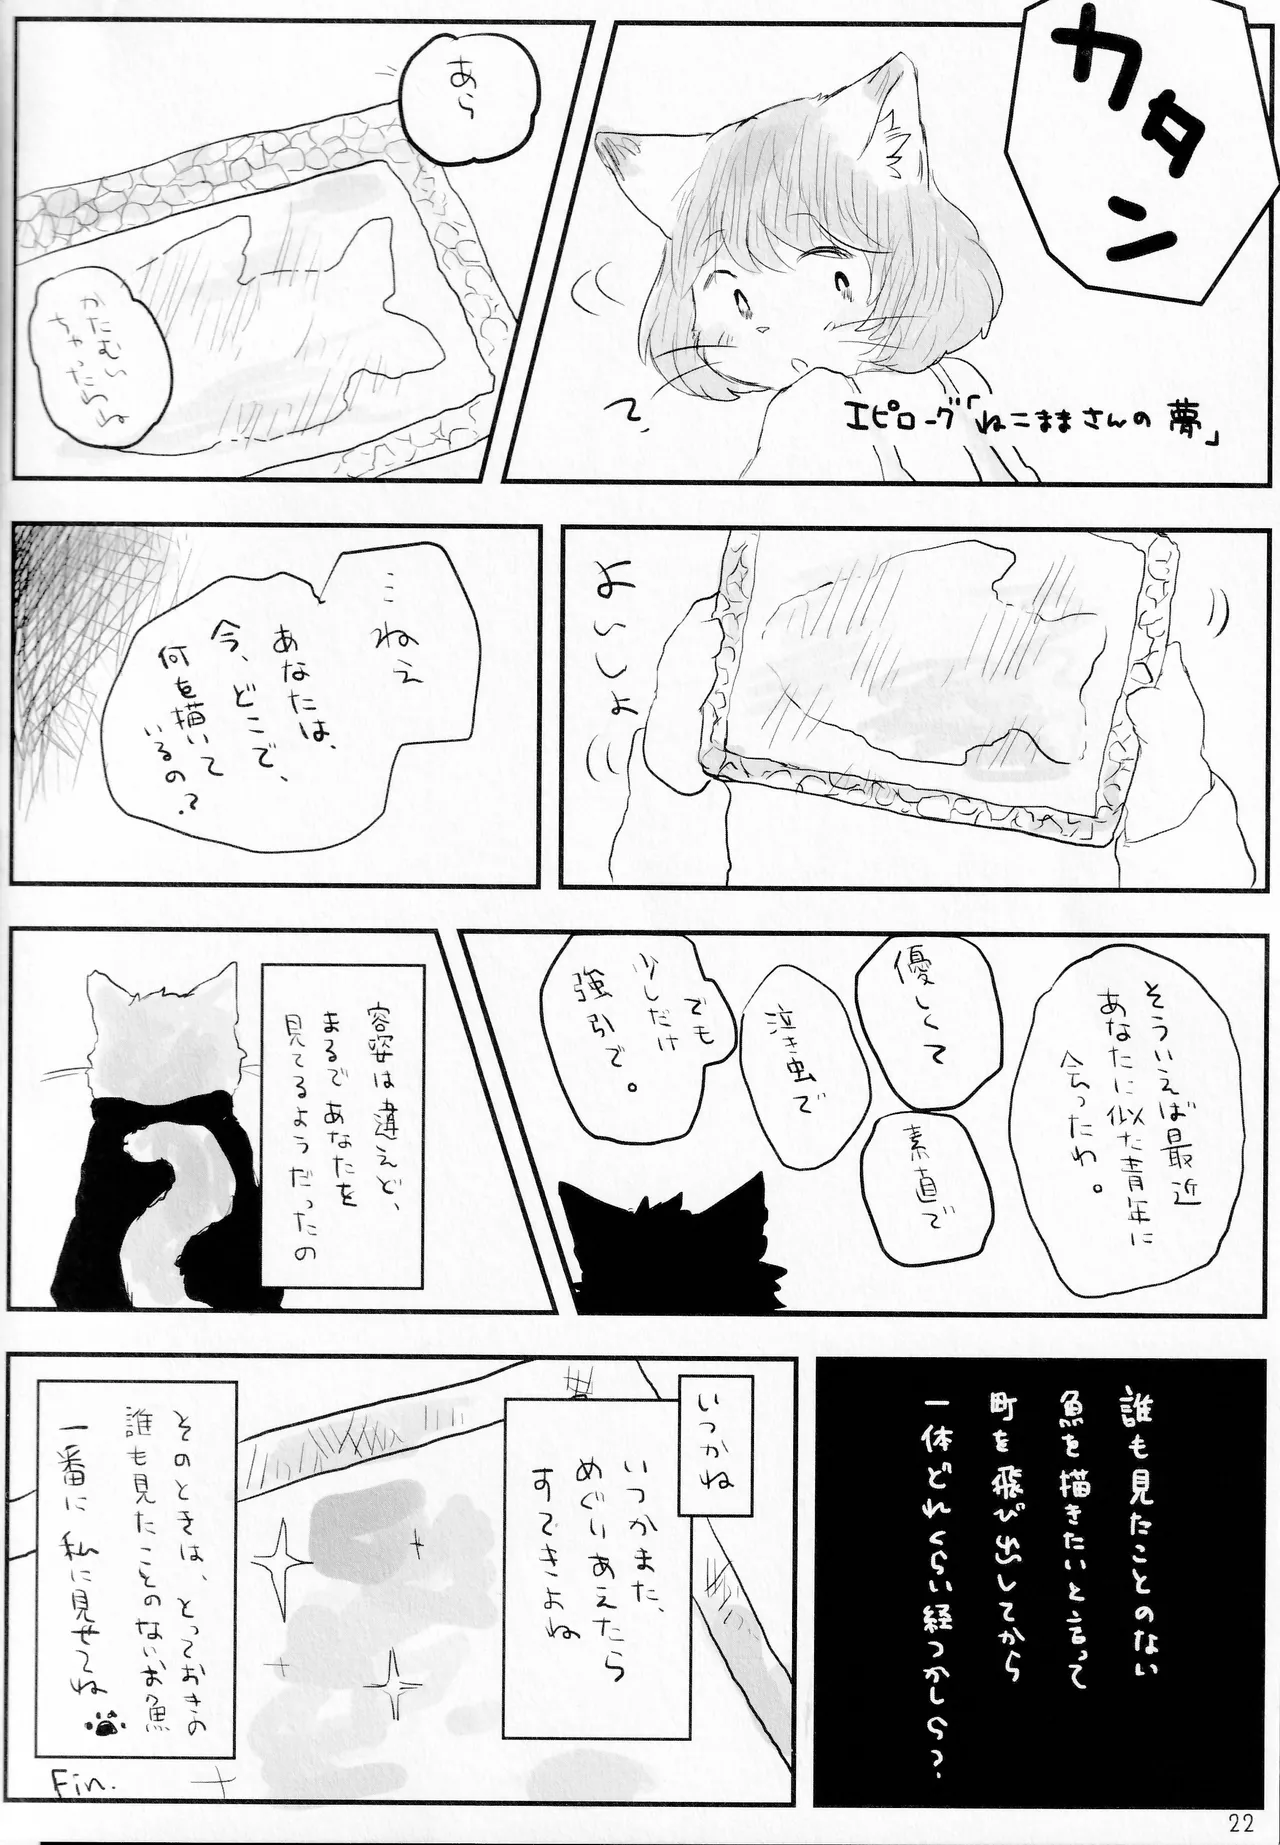 カタン
エピローグ「ねこままさんの夢」
あら
かたむい
ちゃったわね
よいしょ
…ねえ
あなたは、
今、どこで、
何を描いて
いるの？
そういえば最近
あなたに似た青年に
会ったわ。
優しくて
素直で
泣き虫で
でも
少しだけ
強引で。
容姿は違えど、
まるであなたを
見てるようだったの
誰も見たことのない
魚を描きたいと言って
町を飛び出してから
一体どれくらい経つかしら？
いつかね
いつかまた、
めぐりあえたら
すてきよね
そのときは、とっておきの
誰も見たことのないお魚
一番に私に見せてね
Fin.
22